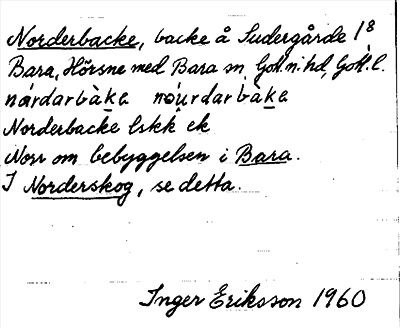 Norderbacke, backe å Sudergårde 1⁸
Bara, Hörsne med Bara sn, Gotl. n. hd, Gotl. l.
nárdarbàka nóurdarbàka
Norderbacke lskk ek
Norr om bebyggelsen i Bara.
I Norderskog, se detta.
Inger Eriksson 1960